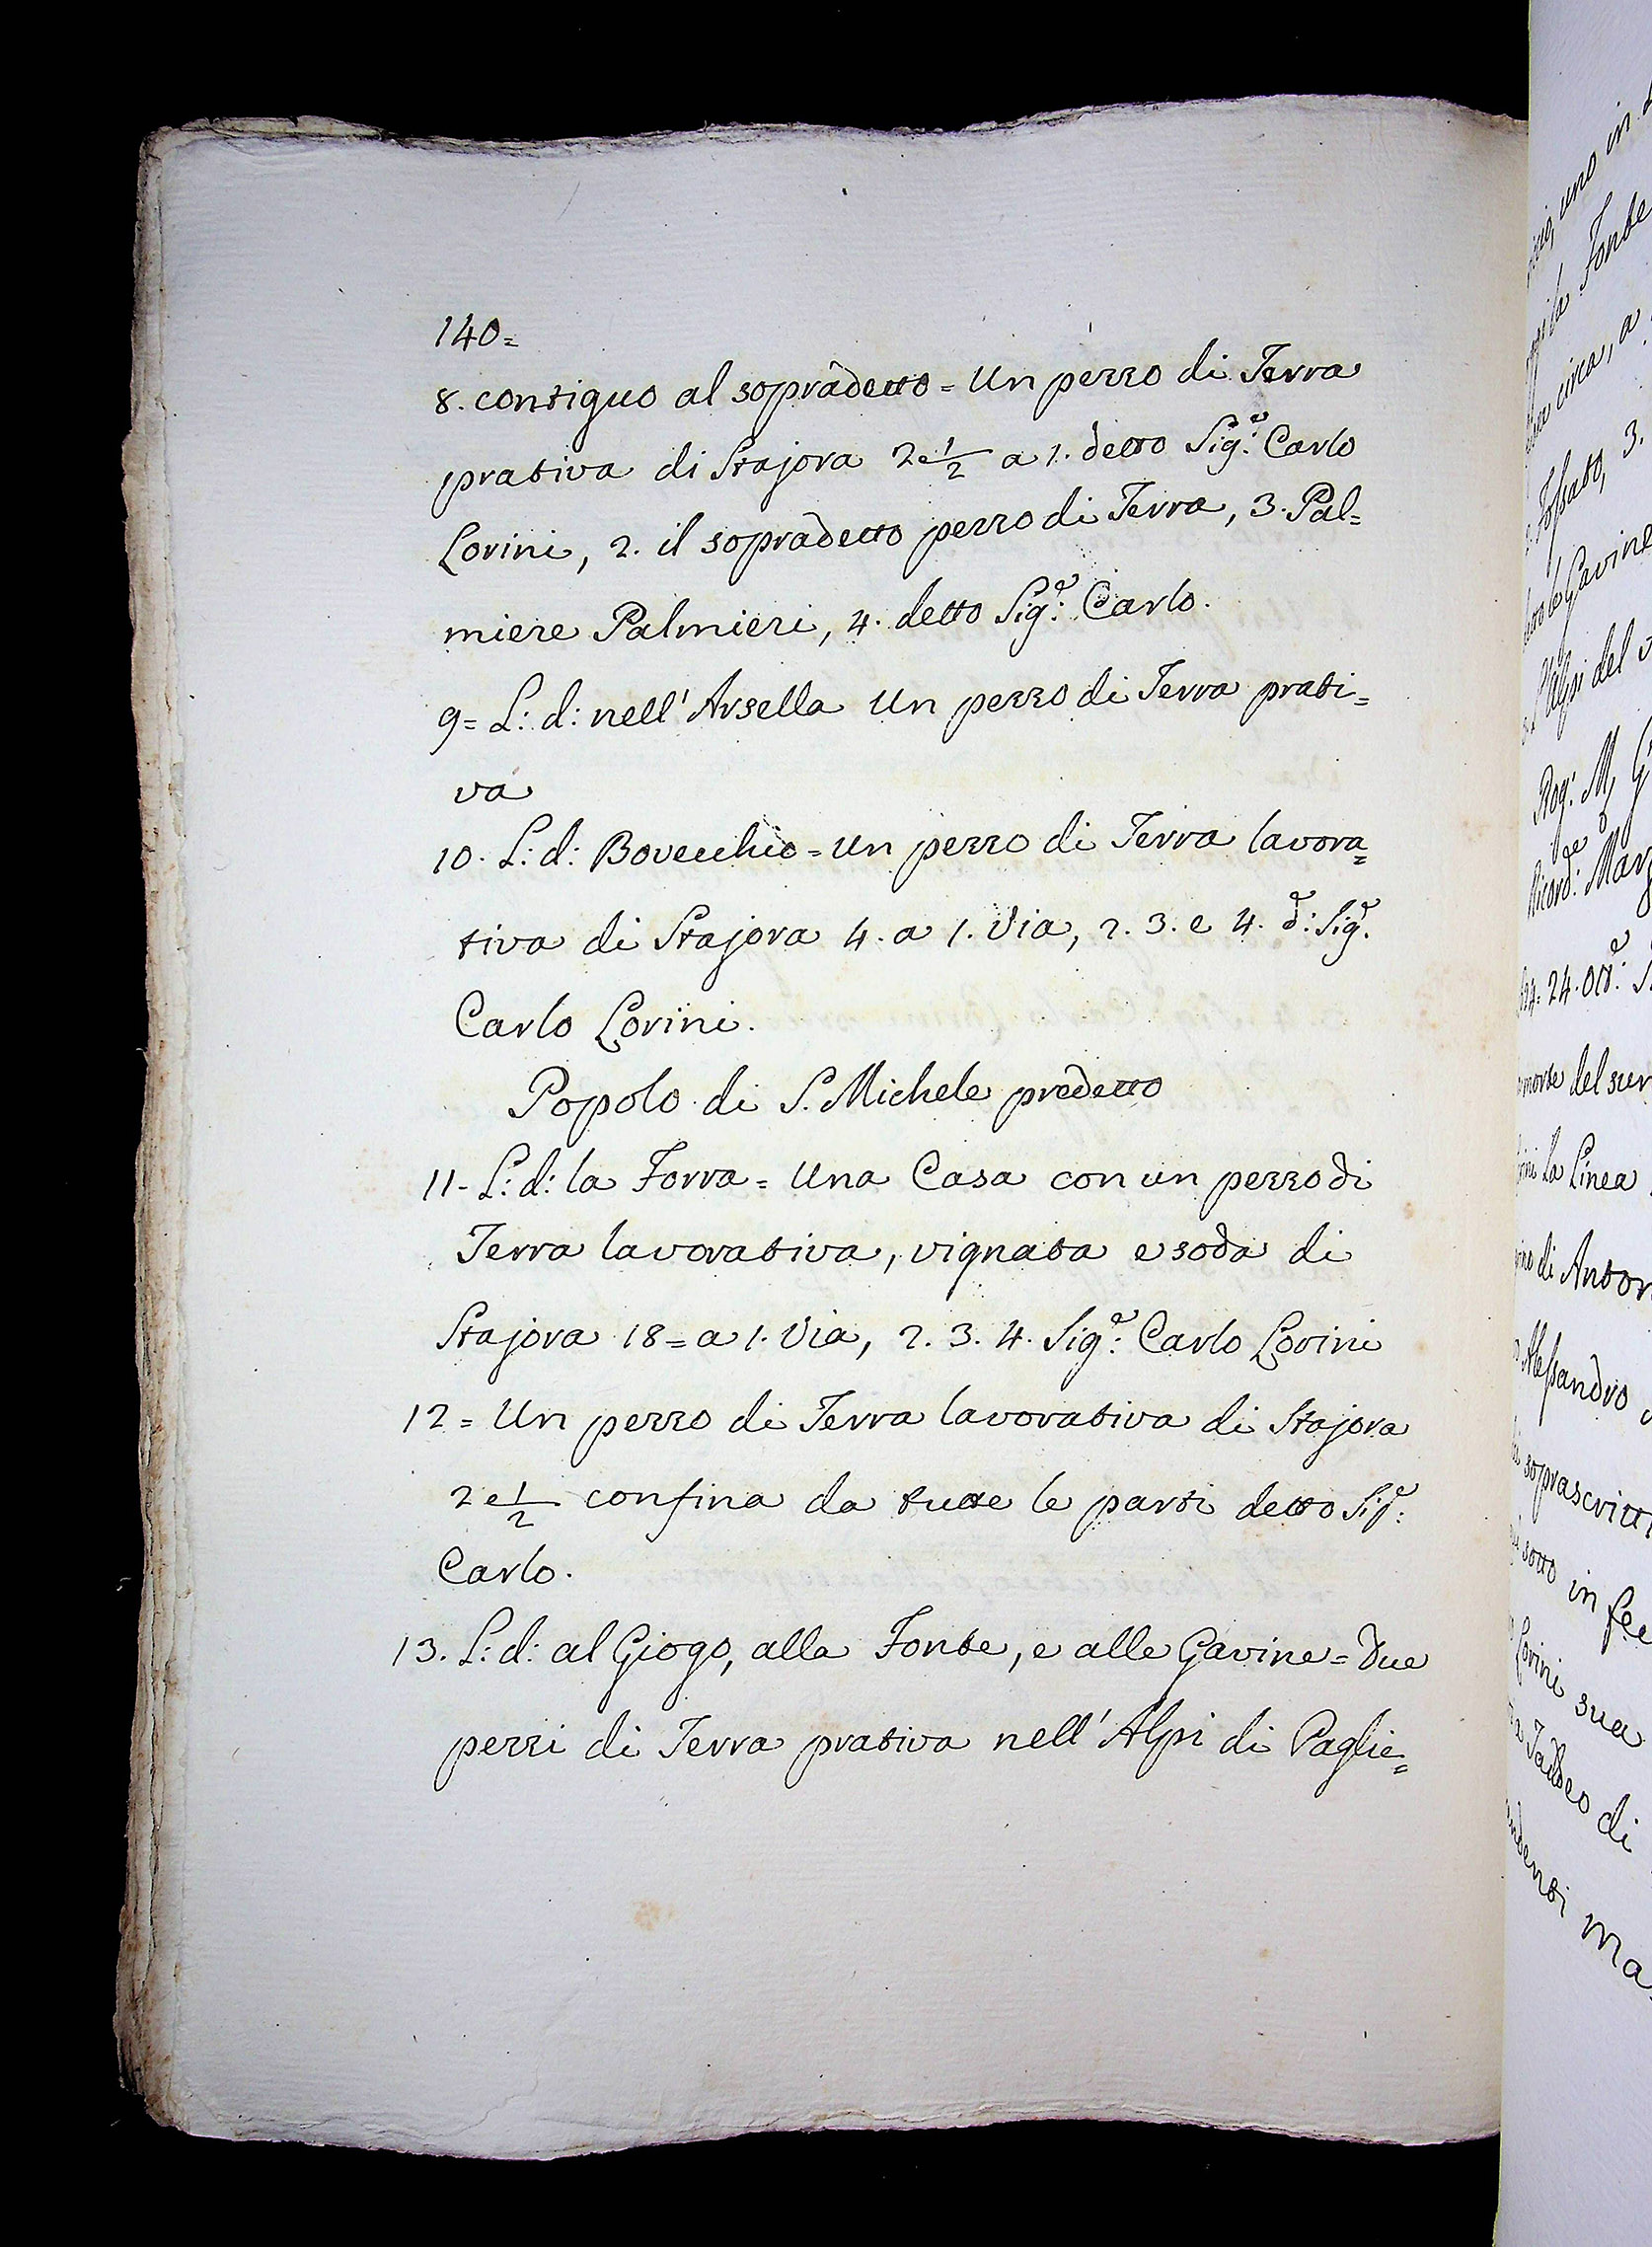 140=
8. contiguo al sopradetto = Un pezzo di Terra
prativa di Stajora 2 e 1/2 a 1. detto Sig.e: Carlo
Lorini, 2. il sopradetto pezzo di Terra, 3. Pal=
miere Palmieri, 4. detto Sig.e: Carlo.
9= L: d: nell' Arsella Un pezzo di Terra prati=
va
10. L: d: Bovecchio = Un pezzo di Terra lavora=
tiva di Stajora 4. a 1. Via, 2. 3. e 4. d.e: Sig.e
Carlo Lorini.
Popolo di S. Michele predetto
11- L: d: la Forra = Una Casa con un pezzo di
Terra lavorativa, vignata e soda di
Stajora 18= a 1. Via, 2. 3. 4. Sig.e: Carlo Lorini
12= Un pezzo di Terra lavorativa di Stajora
2 e 1/2 confina da tutte le parti detto Sig.e:
Carlo.
13. L: d: al Giogo, alla Fonte, e alle Gavine = Due
pezzi di Terra prativa nell' Alpi di Paglie=
uno in
la Fonte
circa, a
Fossato, 3.
le Gavine
l'Alpi del
Rog: M
Ricord:
24. Ott.e:
morte del
La Linea
di Anton
Alessandro
soprascritt
sotto in
Lorini sua
Taddeo di